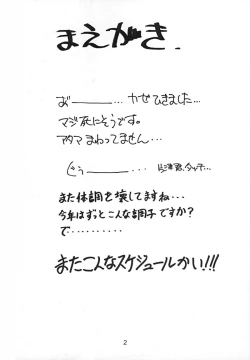 まえがき.
お―――…かぜひきました…
マジ死にそうです。
アタマまわってません…
また体調を壊してますね…
今年はずっとこんな調子ですか?
で………
またこんなスケジュールかい!!!
2